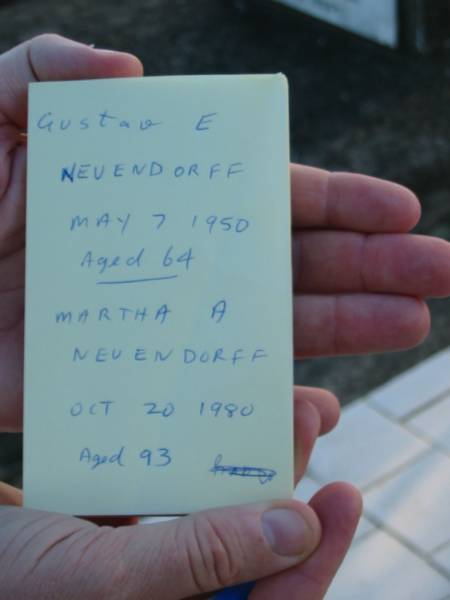 Gustav E
NEUENDORFF
MAY 7 1950
Aged 64
MARTHA A
NEUENDORFF
OCT 20 1980
Aged 93